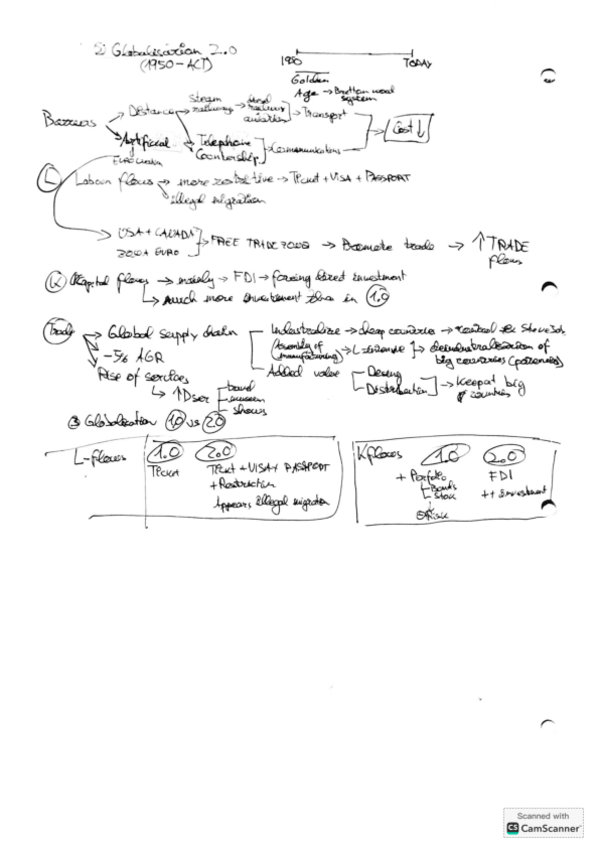 2) Globalisation 2.0
(1950-ACT)
1950 TODAY
Golden
Age → Bretton wood
system
Barriers → Distance → steam
railway → → Transport
aviation
→ Cost ↓
→ Artificial → Telephone
Containership → Communications
L Labour flows → more restrictive → Ticket + VISA + PASSPORT
→ illegal migration
→ USA + CANADA
ZONA EURO → FREE TRADE ZONES → Promote trade → ↑ TRADE
flows
K Capital flows → mainly → FDI → foreing direct investment
→ Much more investment than in 1.0
Trade → Global supply chain
Industrialize → cheap countries →
(Assembly of
manufacturing) → L intensive → deindustrialisation of
big countries
Added value → Desing
Distribution → Keep at big
countries
→ -5% AGR
Rise of services
→ ↑ Dser
museum
shows
3 Globalization 1.0 vs 2.0
L-flows
1.0
Ticket
2.0
Ticket + VISA + PASSPORT
+ Restriction
Appears illegal migration
K flows
1.0
+ Portfolio
Bonds
Stock
2.0
FDI
++ Investment
Scanned with
CS CamScanner